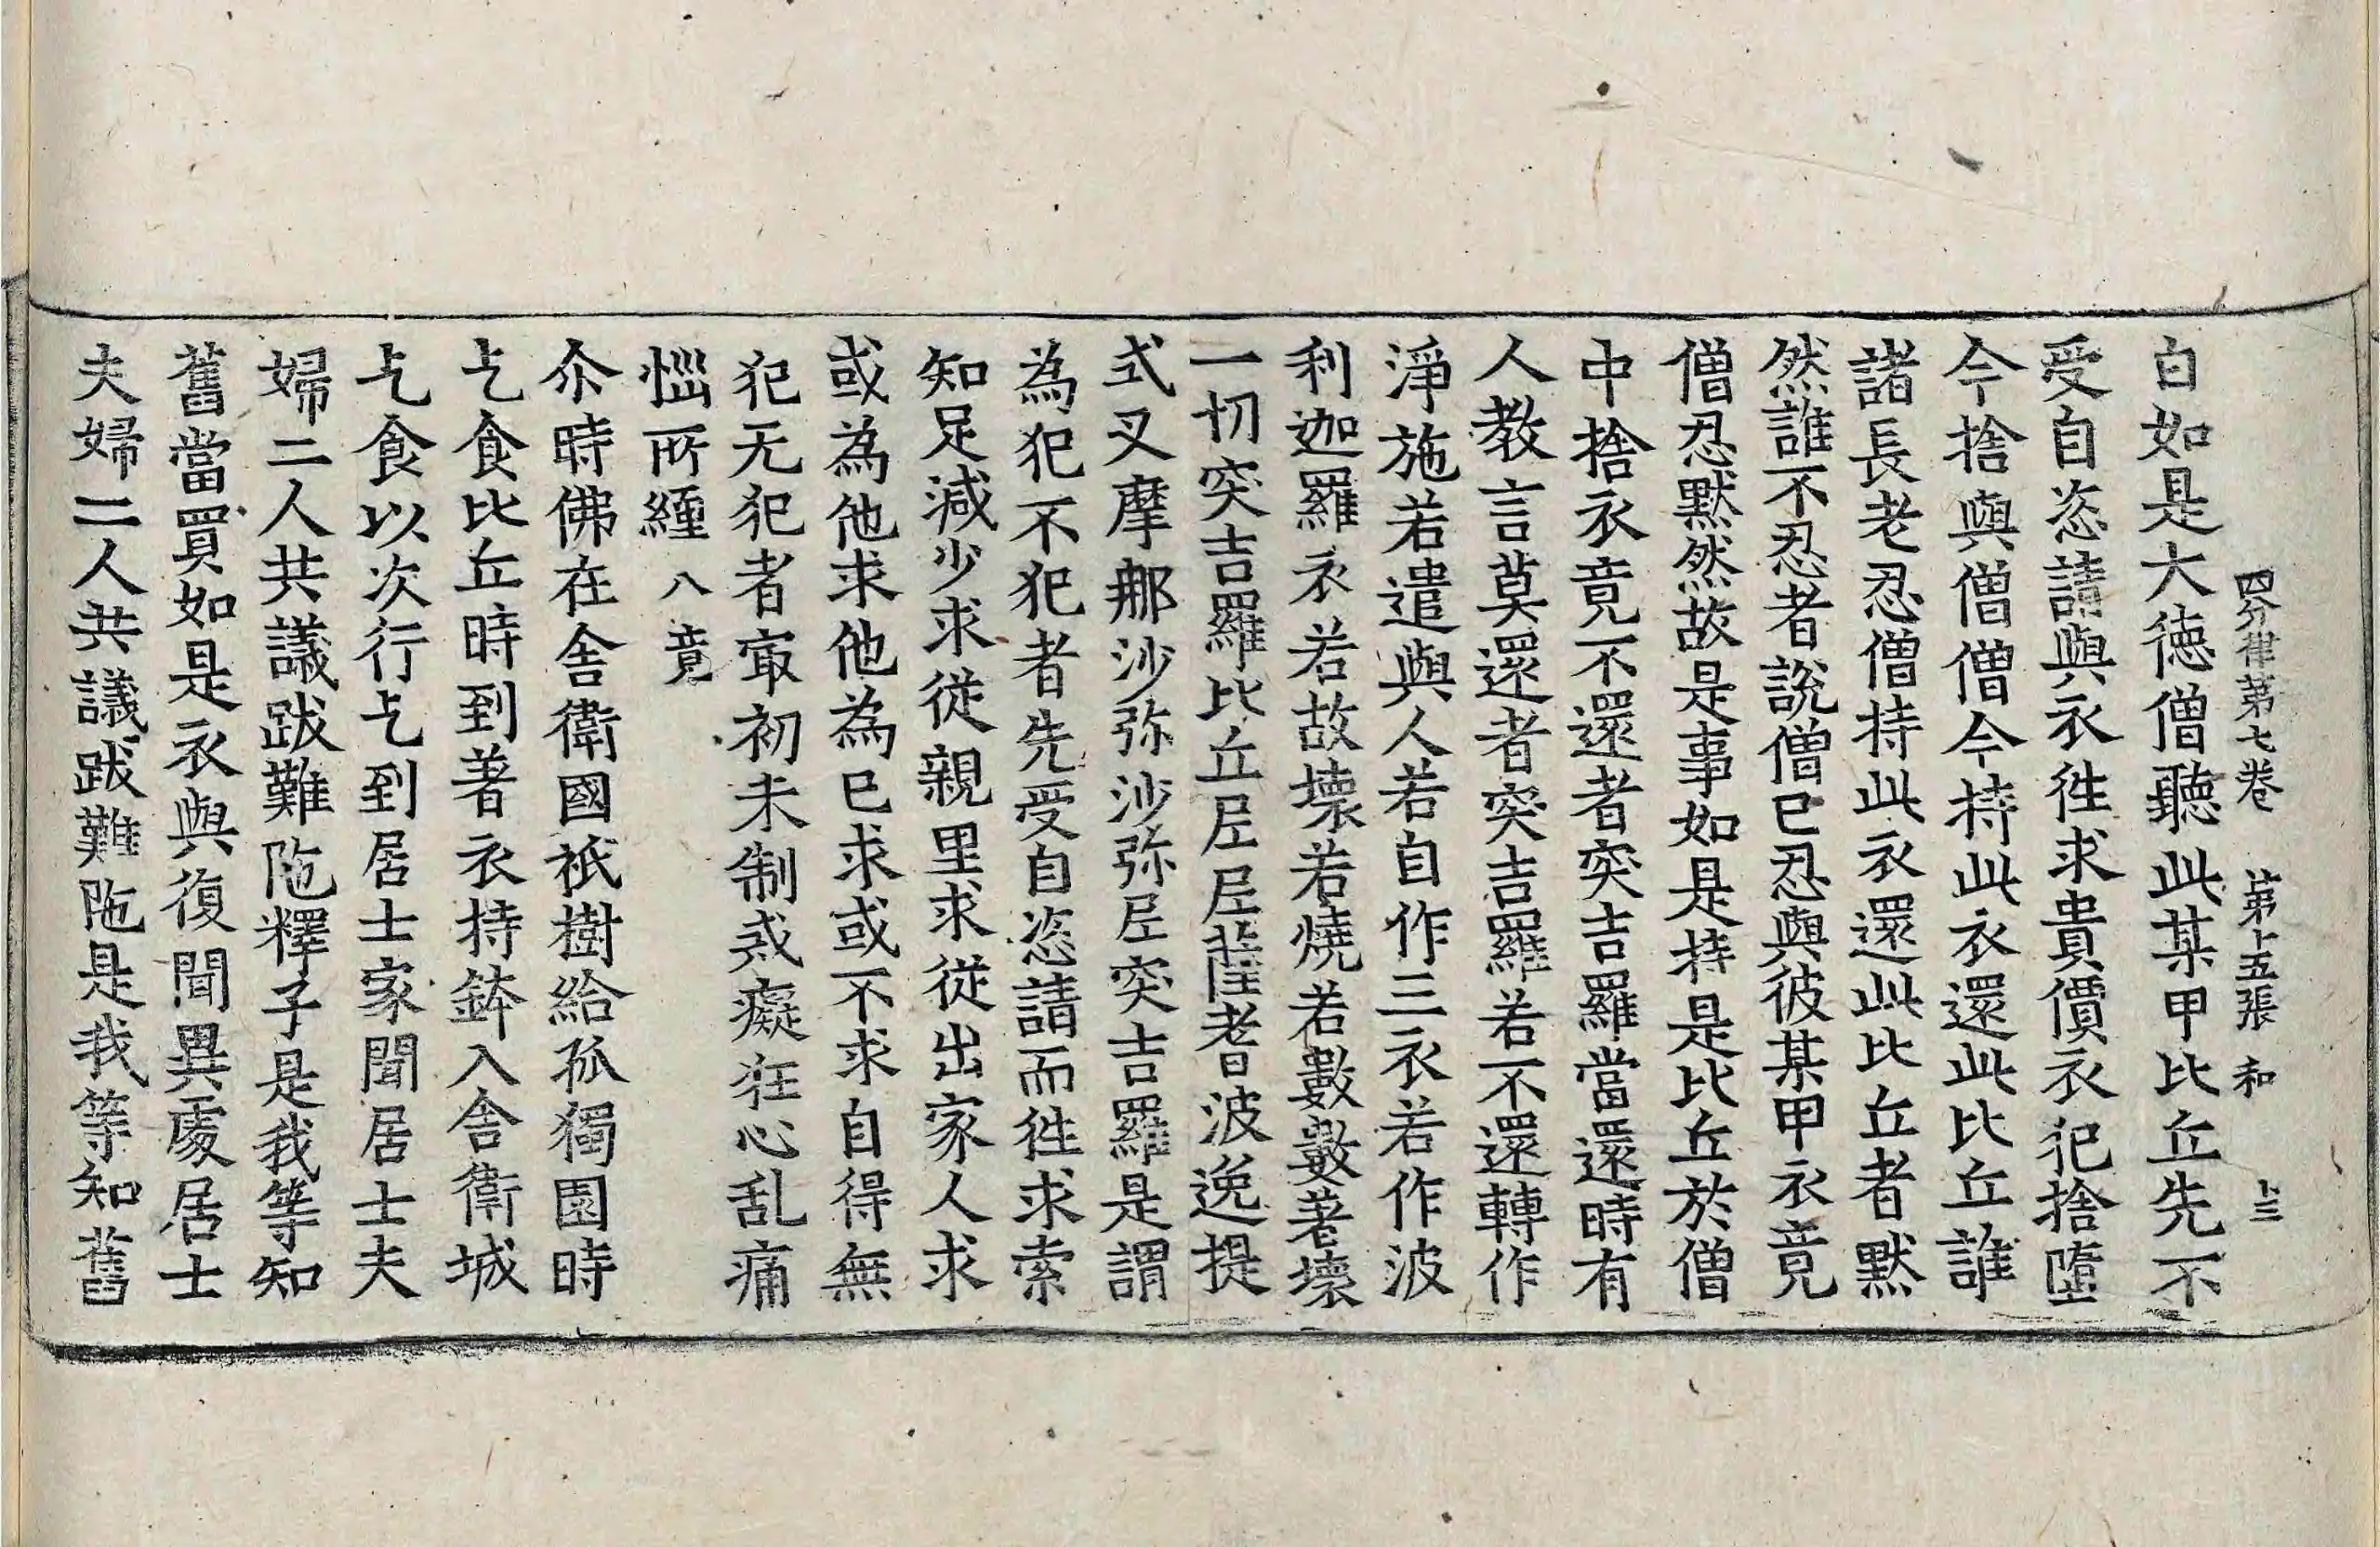 四分律第七卷　第十五張　和　十三
白如是大德僧聽此某甲比丘先不
受自恣請與衣徃求貴價衣犯捨墮
今捨與僧僧今持此衣還此比丘誰
諸長老忍僧持此衣還此比丘者默
然誰不忍者說僧已忍與彼某甲衣竟
僧忍默然故是事如是持是比丘於僧
中捨衣竟不還者突吉羅當還時有
人教言莫還者突吉羅若不還轉作
淨施若遣與人若自作三衣若作波
利迦羅衣若故壞若燒若數數著壞
一切突吉羅比丘尼尼薩耆波逸提
式叉摩那沙弥沙弥尼突吉羅是謂
為犯不犯者先受自恣請而徃求索
知足減少求從親里求從出家人求
或為他求他為已求或不求自得無
犯无犯者㝡初未制㦯癡狂心乱痛
惱所纏　八竟
尒時佛在舍衛國祇樹給孤獨園時
乞食比丘時到著衣持鉢入舍衛城
乞食以次行乞到居士家聞居士夫
婦二人共議跋難陁釋子是我等知
舊當買如是衣與復聞異處居士
夫婦二人共議跋難陁是我等知舊